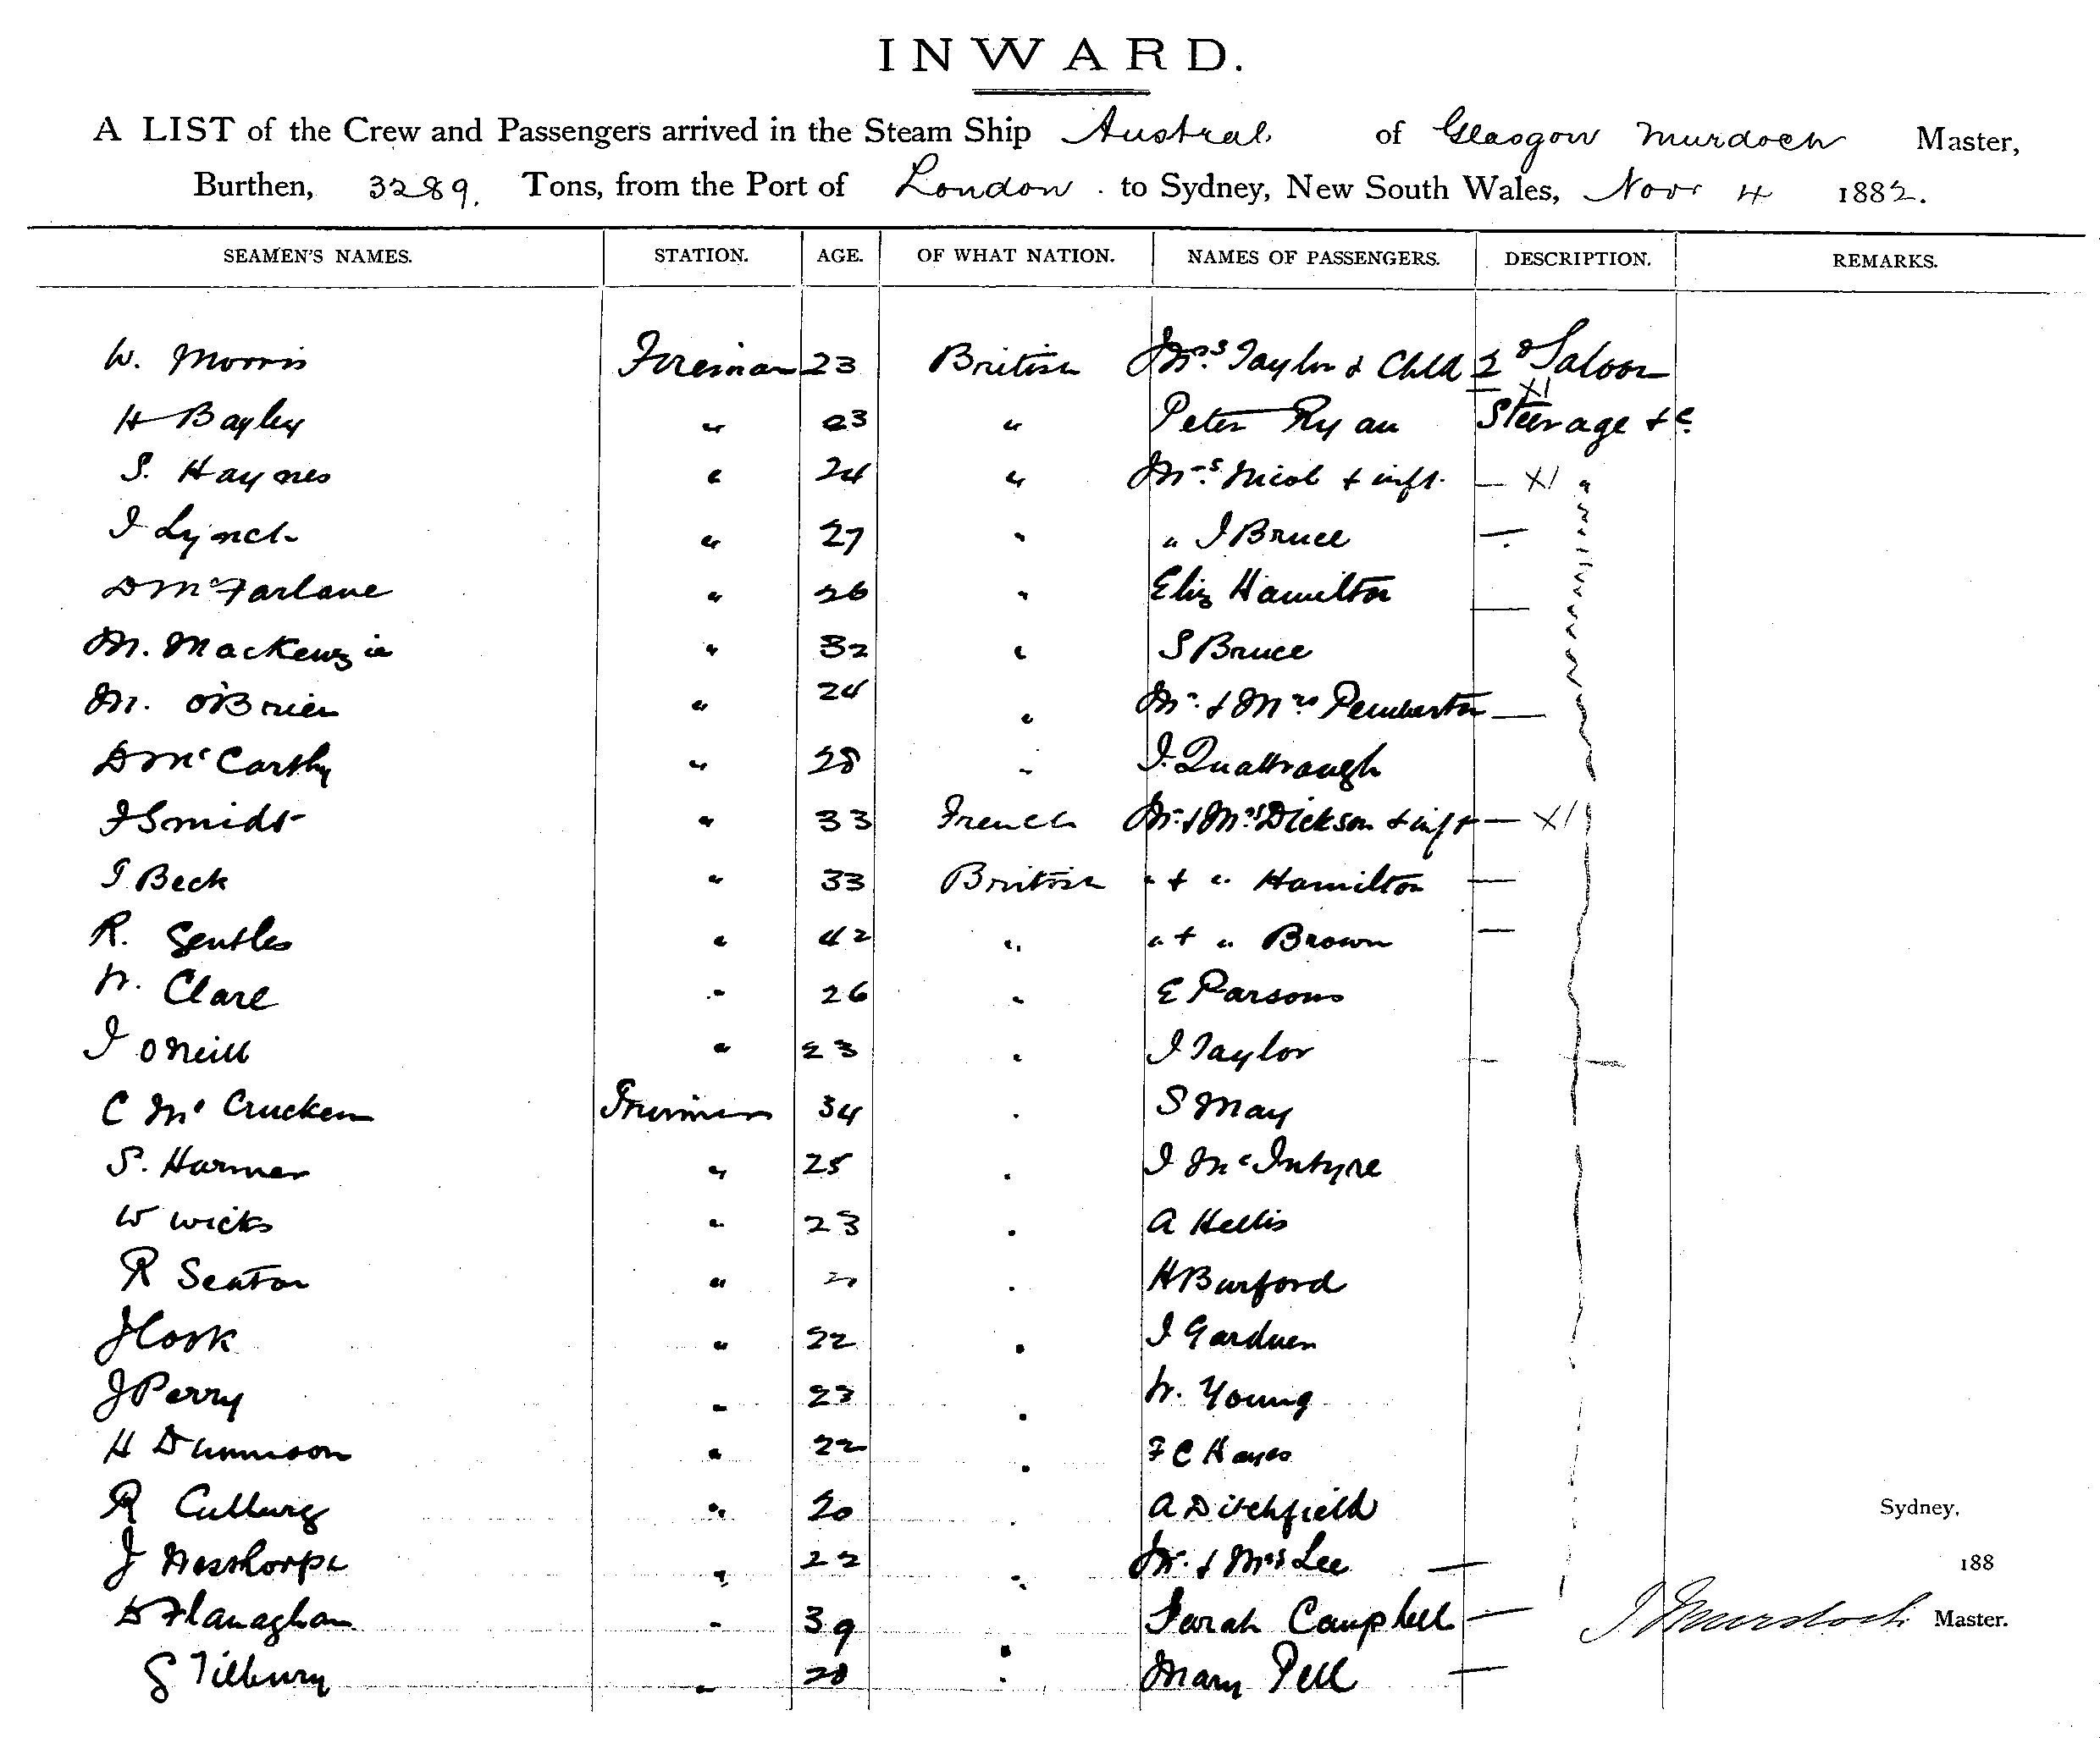 INWARD.
A LIST of the Crew and Passengers arrived in the Steam Ship Austral of Glasgow Murdoch Master,
Burthen, 3289. Tons, from the Port of London. to Sydney, New South Wales, Novr 4 1882.
SEAMEN'S NAMES. STATION. AGE. OF WHAT NATION. NAMES OF PASSENGERS. DESCRIPTION. REMARKS.
W. Morris Fireman 23 British Mrs Taylor & Child 2d Saloon
X1
H Bayley " 23 " Peter Ryan Steerage &c.
S. Haynes " 24 " Mrs Nicol & inft. — X1 "
J Lynch " 27 " " J Bruce —
D McFarlane " 26 " Eliz Hamilton —
M. MacKenzie " 32 " S Bruce
M. O'Brien " 24 " Mr. & Mrs Pemberton —
D McCarthy " 28 " J. Qualtrough
J Smidt " 33 French Mr. & Mrs Dickson & inft — X1
J Beck " 33 British " & " Hamilton —
R. Gentles " 42 " " & " Brown —
W. Clare " 26 " E Parsons
J ONeill " 23 " J Taylor —
C Mc Crucken 34 " S May
S. Harmer " 25 " J McIntyre
W Wicks " 23 " A Hellis
R Seaton " " H Burford
J Cook " 22 " J Gardner
J Perry " 23 " W. Young
H " 22 " F C Hayes
R " 20 " A Ditchfield
Sydney,
J " 22 " Mr. & Mrs Lee —
188
D Flanaghan " 39 " Sarah Campbell —
J Murdoch Master.
G Tilbury " 28 " Mary Pell —